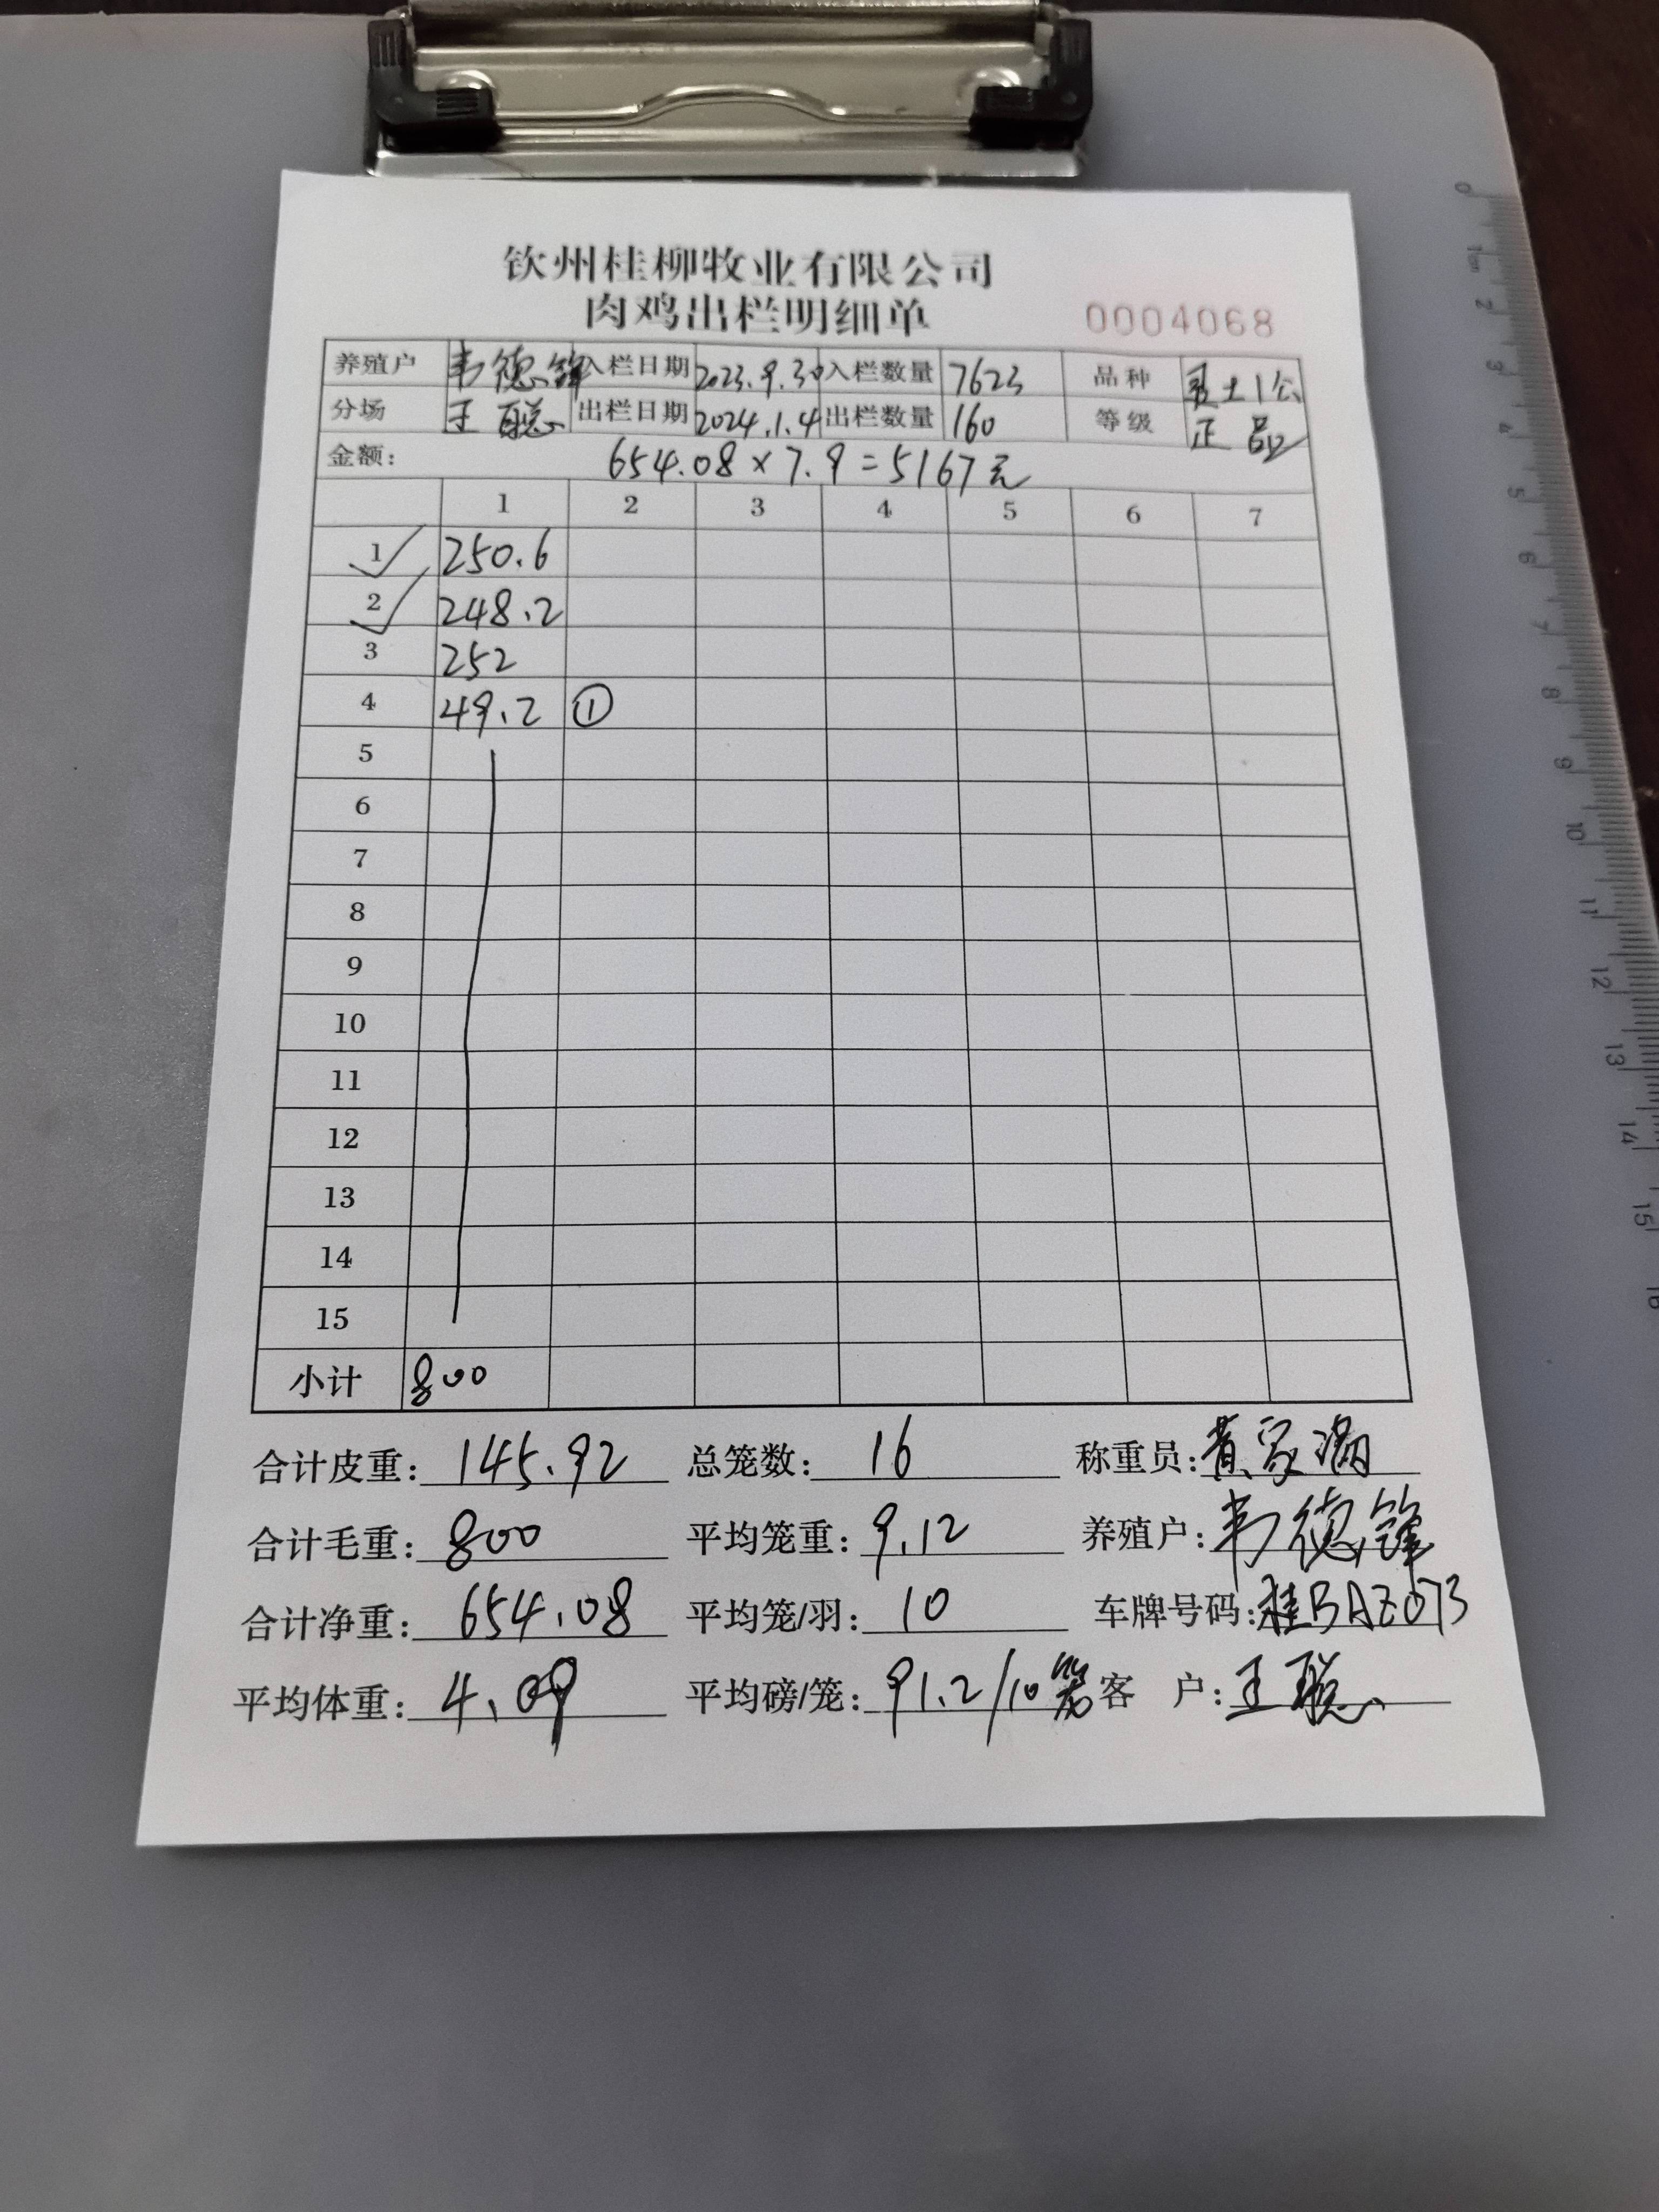 钦州桂柳牧业有限公司
肉鸡出栏明细单
0004068
养殖户 韦德锋 入栏日期 2023.9.30 入栏数量 7623 品种 土1公
分场 王聪 出栏日期 2024.1.4 出栏数量 160 等级 正品
金额: 654.08×7.9=5167元
1 2 3 4 5 6 7
1 250.6
2 248.2
3 252
4 49.2 ①
5
6
7
8
9
10
11
12
13
14
15
小计 800
合计皮重: 145.92 总笼数: 16 称重员: 黄家满
合计毛重: 800 平均笼重: 9.12 养殖户: 韦德锋
合计净重: 654.08 平均笼/羽: 10 车牌号码: 桂BAZ073
平均体重: 4.09 平均磅/笼: 91.2/10笼 客 户: 王聪
0 1cm 2 3 4 5 6 7 8 9 10 11 12 13 14 15 16